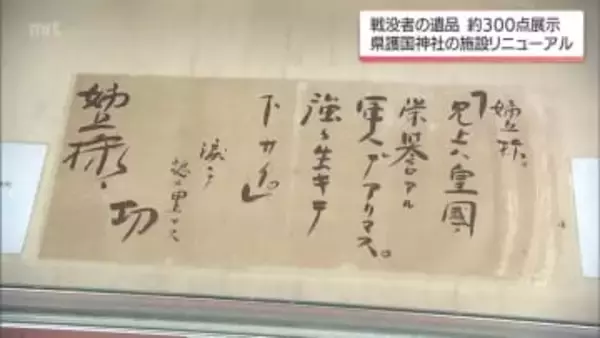 mrt
戦没者の遺品 約300点展示
県護国神社の施設リニューアル
姉上様。
「兄上ハ皇國ノ
栄誉アル
軍人デアリマス。
強ク生キテ
下サイ」
涙
功
姉上様